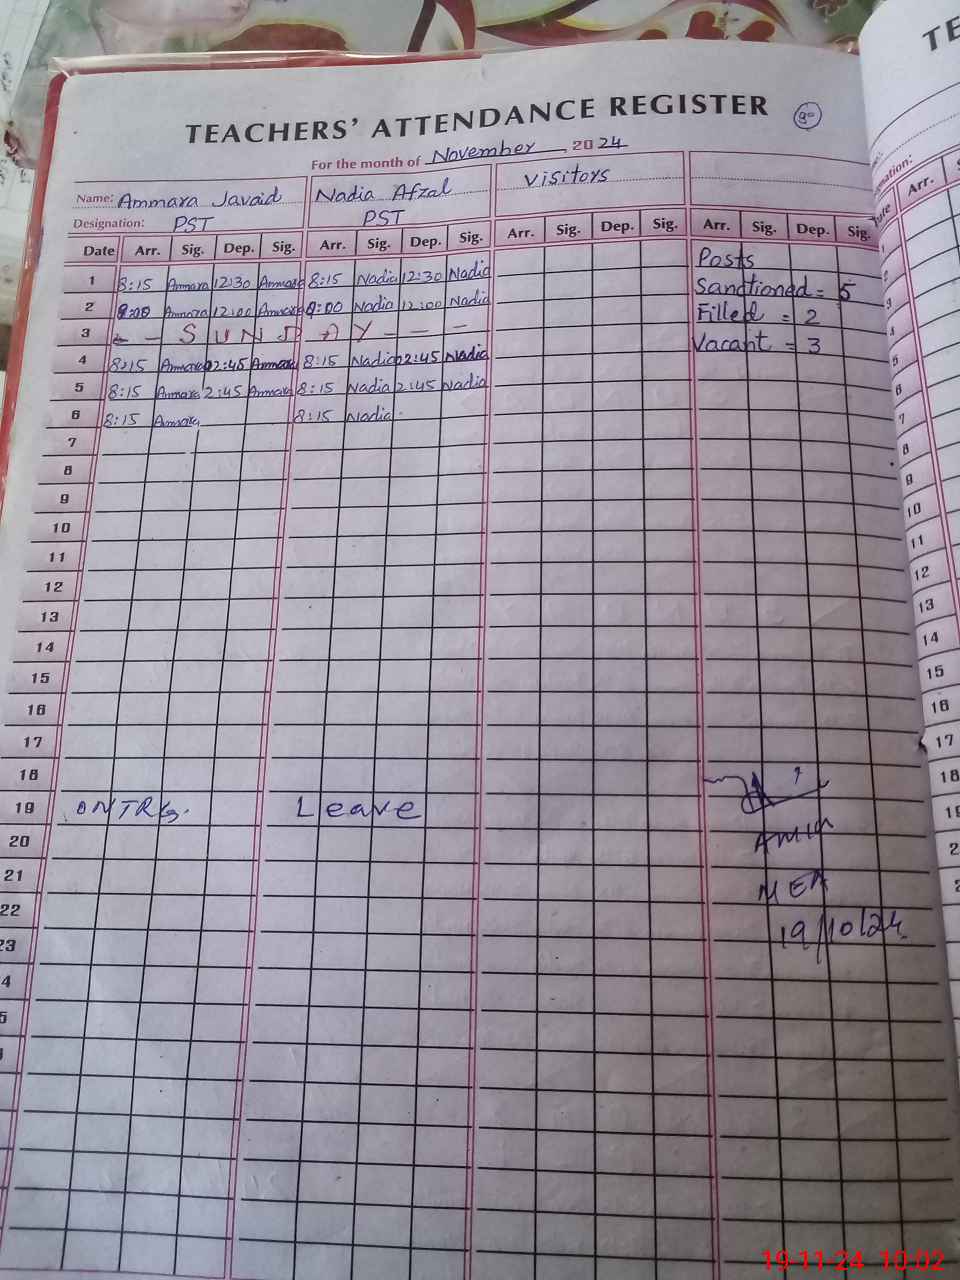 TEACHERS' ATTENDANCE REGISTER
For the month of November, 2024
Name: Ammara Javaid Nadia Afzal Visitors
Designation: PST PST
Date Arr. Sig. Dep. Sig. Arr. Sig. Dep. Sig. Arr. Sig. Dep. Sig. Arr. Sig. Dep. Sig.
Posts
1 8:15 Ammara 12:30 Ammara 8:15 Nadia 12:30 Nadia Sanctioned = 5
2 9:00 Ammara 12:00 Ammara 9:00 Nadia 12:00 Nadia Filled = 2
3 - S U N D A Y - - - Vacant = 3
4 8:15 Ammara 2:45 Ammara 8:15 Nadia 2:45 Nadia
5 8:15 Ammara 2:45 Ammara 8:15 Nadia 2:45 Nadia
6 8:15 Ammara 8:15 Nadia
7
8
9
10
11
12
13
14
15
16
17
18
19 ON TRG. Leave
20 Amin
21 MEA
22 19/10/24
23
4
5
TE
Arr.
8
9
10
11
12
13
14
15
16
17
18
19-11-24 10:02